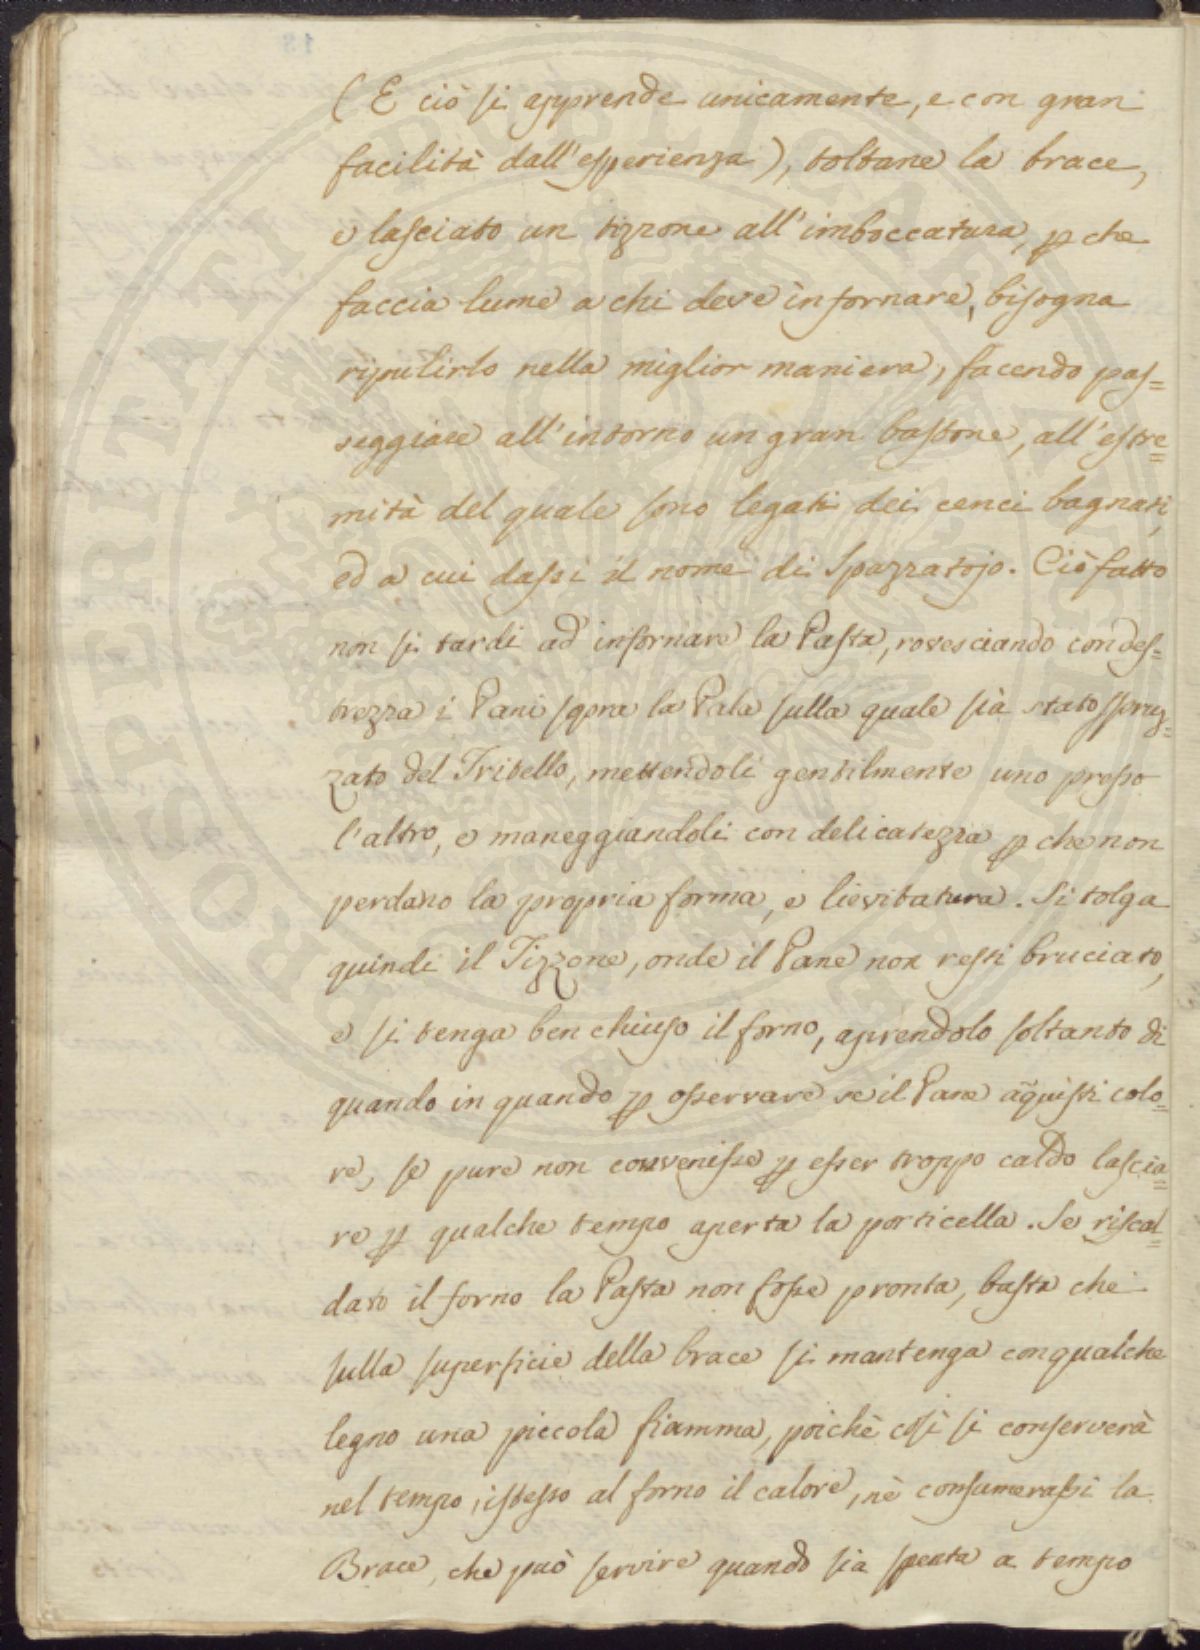 (E ciò si apprende unicamente, e con gran
facilità dall'esperienza), toltane la brace,
e lasciato un tizzone all'imboccatura, p che
faccia lume a chi deve infornare, bisogna
ripulirlo nella miglior maniera, facendo pas=
seggiare all'intorno un gran bastone, all'estre=
mità del quale sono legati dei cenci bagnati,
ed a cui dassi il nome di Spazzatojo. Ciò fatto
non si tardi ad infornare la Pasta, rovesciando con des=
trezza i Pani sopra la Pala sulla quale sià stato spruz=
zato del Tritello, mettendoli gentilmente uno presso
l'altro, e maneggiandoli con delicatezza p che non
perdano la propria forma, e lievitatura. Si tolga
quindi il Tizzone, onde il Pane non resti bruciato,
e si tenga ben chiuso il forno, aprendolo soltanto di
quando in quando p osservare se il Pane aquisti colo=
re, se pure non convenisse p esser troppo caldo lascia=
re p qualche tempo aperta la porticella. Se riscal=
dato il forno la Pasta non fosse pronta, basta che
sulla superficie della brace si mantenga con qualche
legno una piccola fiamma, poichè così si conserverà
nel tempo istesso al forno il calore, nè consumerassi la
Brace, che può servire quando sia spenta a tempo
PROSPERITATI PUBLICAE AUGENDAE